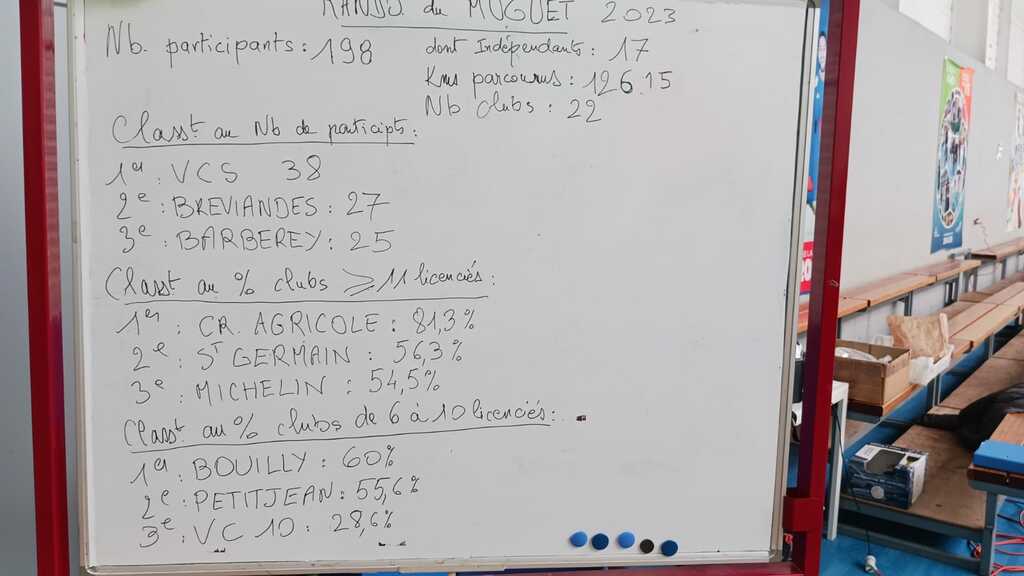 RANDO du MUGUET 2023
Nb. participants : 198
dont Indépendants : 17
Kms parcourus : 126.15
Nb clubs : 22
Classt au Nb de participts :
1er : VCS 38
2e : BREVIANDES : 27
3e : BARBEREY : 25
Classt au % clubs ⩾ 11 licenciés :
1er : CR. AGRICOLE : 81,3 %
2e : ST GERMAIN : 56,3 %
3e : MICHELIN : 54,5 %
Classt au % clubs de 6 à 10 licenciés :
1er : BOUILLY : 60%
2e : PETITJEAN : 55,6 %
3e : VC 10 : 28,6 %